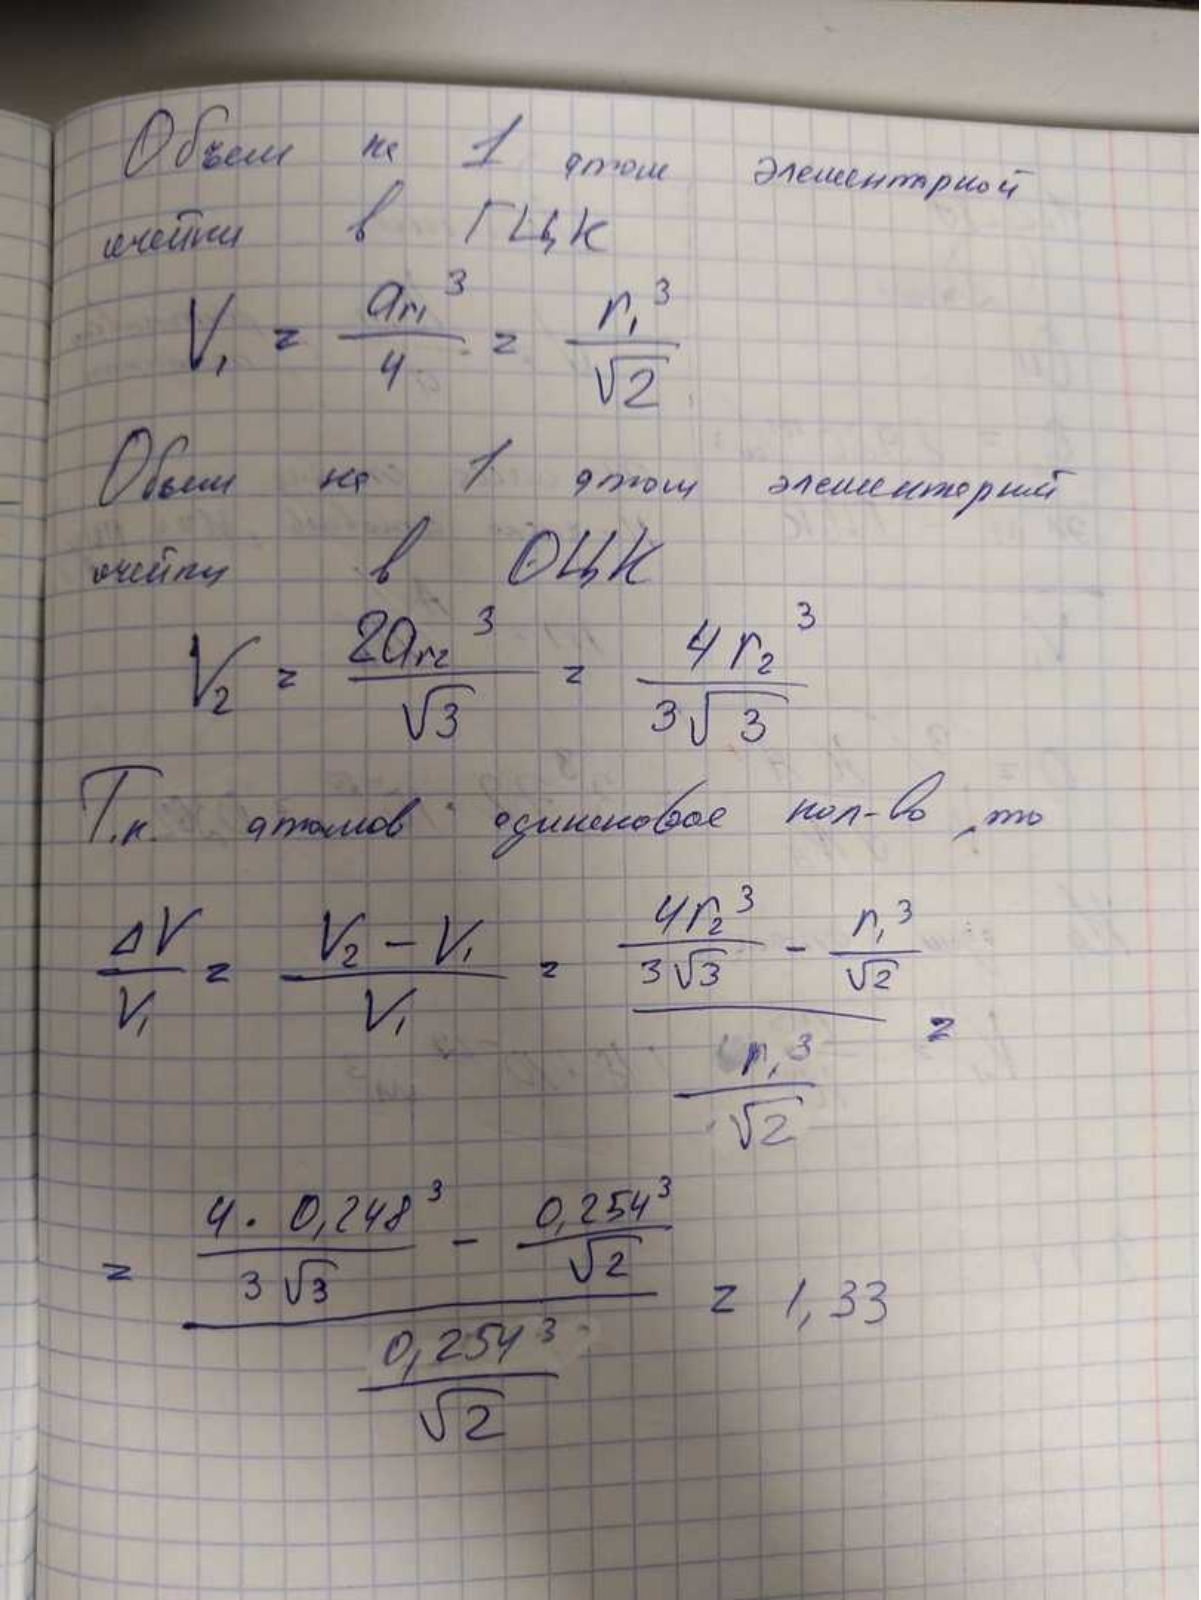 Объем на 1 атом элементарной
ячейки в ГЦК
V₁ = aᵣ₁³/4 = r₁³/√2
Объем на 1 атом элементарний
ячейки в ОЦК
V₂ = 2aᵣ₂³/√3 = 4r₂³/3√3
Т.к. атомов одинаковое кол-во, то
ΔV/V₁ = (V₂ - V₁)/V₁ = (4r₂³/3√3 - r₁³/√2)/(r₁³/√2) =
= (4·0,248³/3√3 - 0,254³/√2)/(0,254³/√2) = 1,33